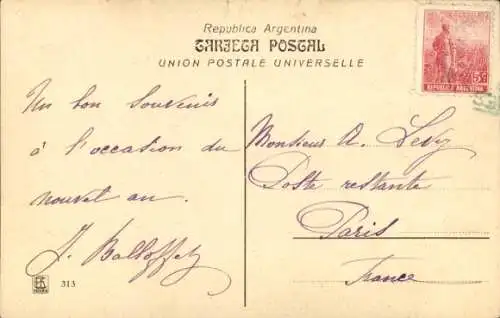 Republica Argentina
TARJETA POSTAL
UNION POSTALE UNIVERSELLE
5c
REPUBLICA ARGENTINA
Un bon souvenir
à l'occasion du
nouvel an.
J. Balloffetz
Monsieur A. Levy
Poste restante
Paris
France
313